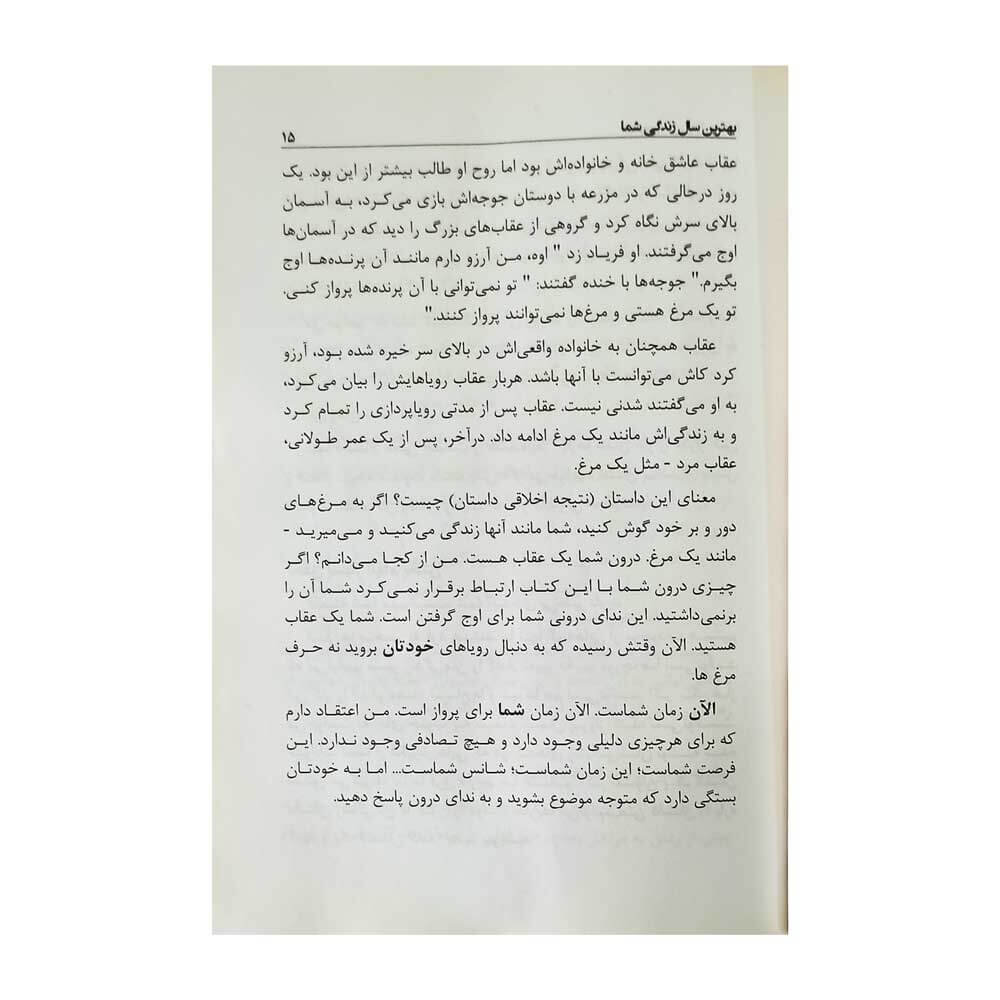 بهترین سال زندگی شما ۱۵
عقاب عاشق خانه و خانواده‌اش بود اما روح او طالب بیشتر از این بود. یک
روز درحالی که در مزرعه با دوستان جوجه‌اش بازی می‌کرد، به آسمان
بالای سرش نگاه کرد و گروهی از عقاب‌های بزرگ را دید که در آسمان‌ها
اوج می‌گرفتند. او فریاد زد " اوه، من آرزو دارم مانند آن پرنده‌ها اوج
بگیرم." جوجه‌ها با خنده گفتند: " تو نمی‌توانی با آن پرنده‌ها پرواز کنی.
تو یک مرغ هستی و مرغ‌ها نمی‌توانند پرواز کنند."
عقاب همچنان به خانواده واقعی‌اش در بالای سر خیره شده بود، آرزو
کرد کاش می‌توانست با آنها باشد. هربار عقاب رویاهایش را بیان می‌کرد،
به او می‌گفتند شدنی نیست. عقاب پس از مدتی رویاپردازی را تمام کرد
و به زندگی‌اش مانند یک مرغ ادامه داد. درآخر، پس از یک عمر طولانی،
عقاب مرد - مثل یک مرغ.
معنای این داستان (نتیجه اخلاقی داستان) چیست؟ اگر به مرغ‌های
دور و بر خود گوش کنید، شما مانند آنها زندگی می‌کنید و می‌میرید -
مانند یک مرغ. درون شما یک عقاب هست. من از کجا می‌دانم؟ اگر
چیزی درون شما با این کتاب ارتباط برقرار نمی‌کرد شما آن را
برنمی‌داشتید. این ندای درونی شما برای اوج گرفتن است. شما یک عقاب
هستید. الآن وقتش رسیده که به دنبال رویاهای خودتان بروید نه حرف
مرغ ها.
الآن زمان شماست. الآن زمان شما برای پرواز است. من اعتقاد دارم
که برای هرچیزی دلیلی وجود دارد و هیچ تصادفی وجود ندارد. این
فرصت شماست؛ این زمان شماست؛ شانس شماست... اما به خودتان
بستگی دارد که متوجه موضوع بشوید و به ندای درون پاسخ دهید.